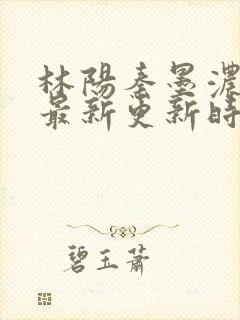 林陽秦墨濃
最新更新時
碧玉蕭